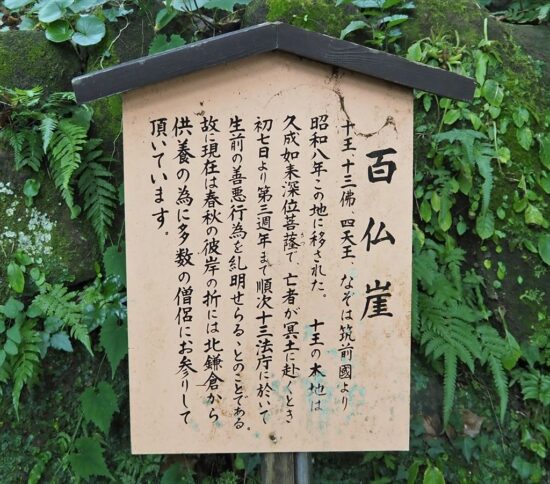 百仏崖
十王、十三佛、四天王、なぞは筑前國より
昭和八年この地に移された。 十王の本地は
久成如来深位菩薩で、亡者が冥土に赴くとき
初七日より第三週年まで順次十三法庁に於いて
生前の善悪行為を糺明せらるゝとのことである。
故に現在は春秋の彼岸の折には北鎌倉から
供養の為に多数の僧侶にお参りして
頂いています。